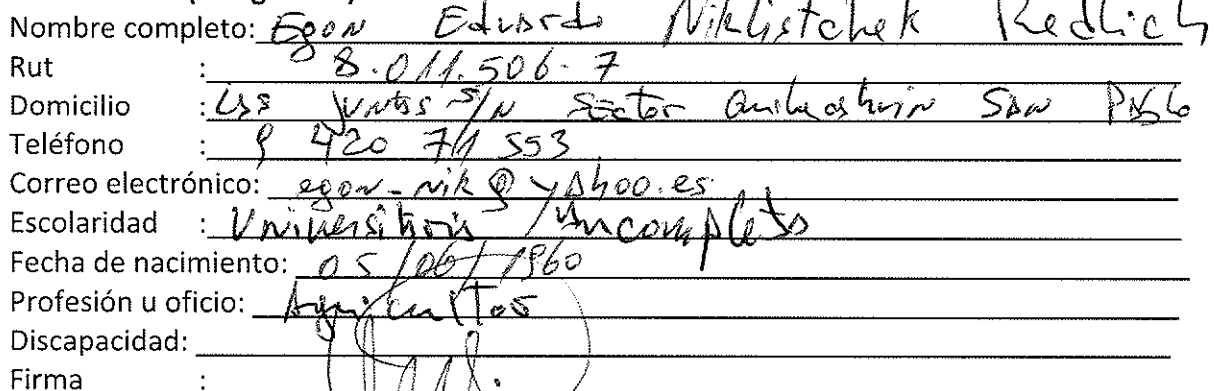 Nombre completo: Egon Eduardo Niklistchek Redlich
Rut : 8.011.506-7
Domicilio : Las Juntas S/N Sector Quilacahuin San Pablo
Teléfono : 9 420 711 553
Correo electrónico: egon_nik@yahoo.es
Escolaridad : Universitaria Incompleta
Fecha de nacimiento: 05/06/1960
Profesión u oficio: Agricultor
Discapacidad:
Firma :